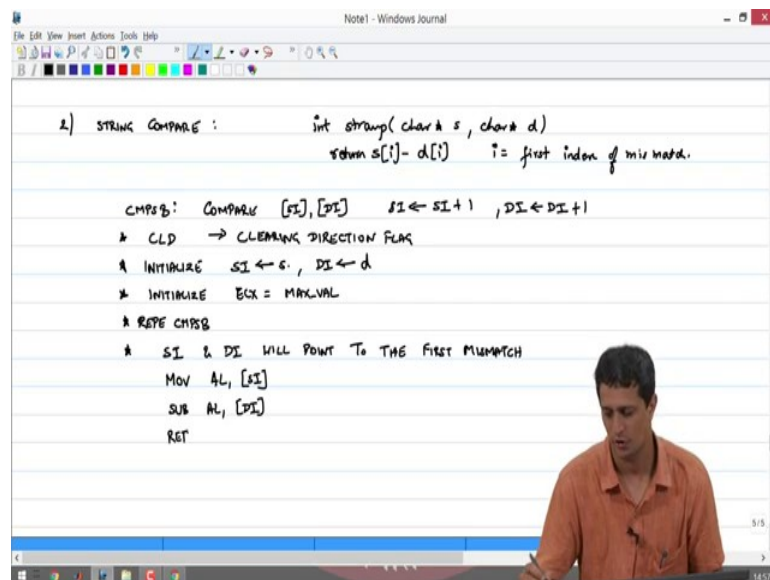 Note1 - Windows Journal
File Edit View Insert Actions Tools Help
B I
2) STRING COMPARE : int strcmp( char* s , char* d )
return s[i] - d[i] i = first index of mismatch.
CMPSB: COMPARE [SI], [DI] SI ← SI + 1 , DI ← DI + 1
* CLD → CLEARING DIRECTION FLAG
* INITIALIZE SI ← s. , DI ← d
* INITIALIZE ECX = MAX_VAL
* REPE CMPSB
* SI & DI WILL POINT TO THE FIRST MISMATCH
MOV AL, [SI]
SUB AL, [DI]
RET
5/5